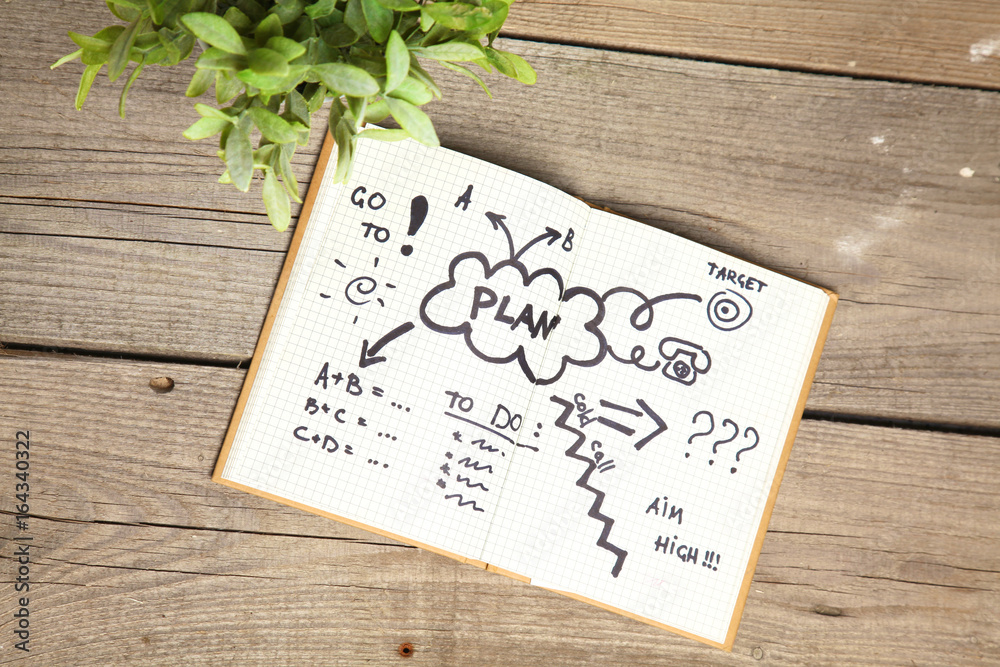 GO
TO !
A
B
PLAN
TARGET
A+B= ...
B+C= ...
C+D= ...
TO DO:
???
AIM
HIGH!!!
Adobe Stock | #164340322